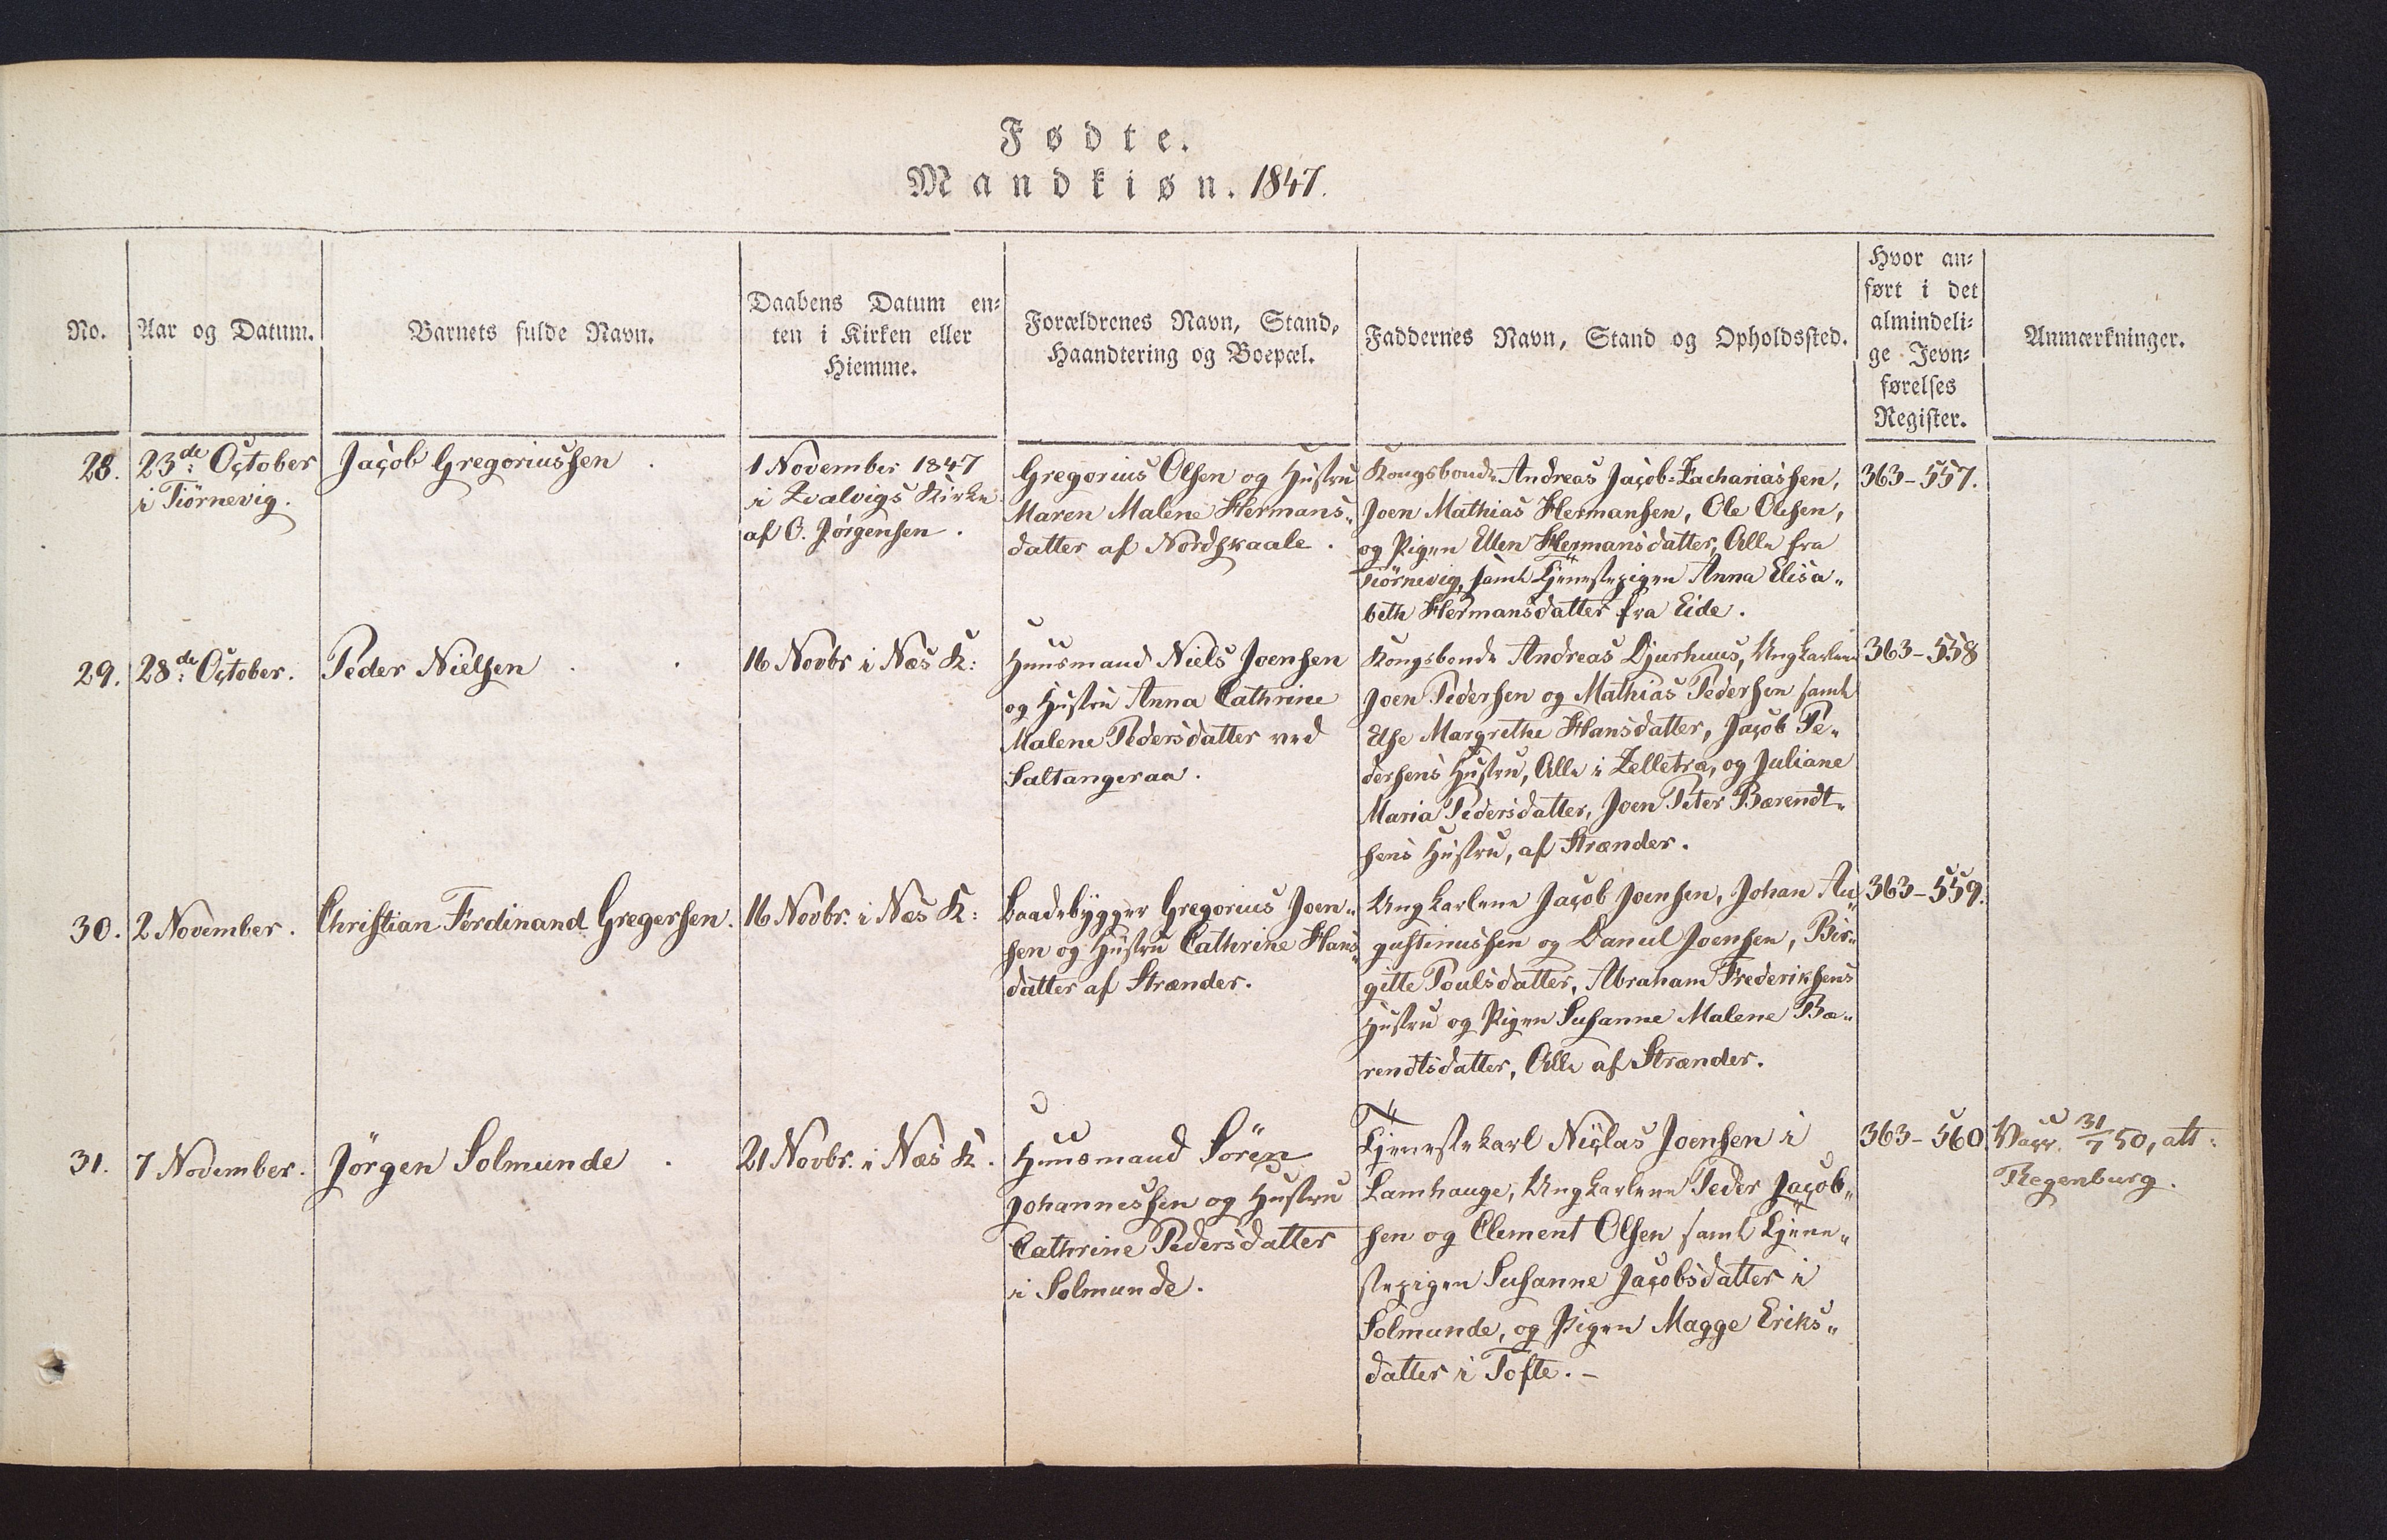 Fødte.
Mandkiøn. 1847.
No.
Aar og Datum.
Barnets fulde Navn.
Daabens Datum en-
ten i Kirken eller
Hiemme.
Forældrenes Navn, Stand,
Haandtering og Boepæl.
Faddernes Navn, Stand og Opholdssted.
Hvor an-
ført i det
almindeli-
ge Jevn-
førelses
Register.
Anmærkninger.
28.
23de October
i Tiörnevig.
Jacob Gregoriussen
1 November 1847
i Qvalvigs Kirke
af O. Jørgensen.
Gregorius Olsen og Hustru
Maren Malene Hermans-
datter af Nordskaale.
Kongsbonde Andreas Jacob Zachariassen,
Joen Mathias Hermansen, Ole Olesen,
og Pigen Ellen Hermansdatter, Alle fra
Tiörnevig, samt Tjenestepigen Anna Elisa-
beth Hermansdatter fra Eide.
363-557.
29.
28de October.
Peder Nielsen
16 Novbr i Næs K:
Huusmand Niels Joensen
og Hustru Anna Cathrine
Malene Pedersdatter ved
Saltangeraa.
Kongsbonde Andreas Djurhuus, Ungkarlene
Joen Pedersen og Mathias Pedersen samt
Else Margrethe Hansdatter, Jacob Pe-
dersens Hustru, Alle i Zelletræ, og Juliane
Maria Pedersdatter, Joen Peter Bærendt-
sens Hustru, af Strænder.
363-558
30.
2 November.
Christian Ferdinand Gregersen.
16 Novbr. i Næs K:
Baadebygger Gregorius Joen-
sen og Hustru Cathrine Hans-
datter af Strænder.
Ungkarlene Jacob Joensen, Johan Au-
gustinussen og Daniel Joensen, Bir-
gitte Poulsdatter, Abraham Frederiksens
Hustru og Pigen Susanne Malene Bæ-
rendtsdatter, Alle af Strænder.
363-559.
31.
7 November.
Jörgen Solmunde
21 Novbr. i Næs K.
Huusmand Sören
Johannessen og Hustru
Cathrine Pedersdatter
i Solmunde.
Tjenestekarl Niclas Joensen i
Lamhauge, Ungkarlene Peder Jacob-
sen og Clement Olsen samt Tjene-
stepigen Susanne Jacobsdatter i
Solmunde, og Pigen Magge Eriks-
datter i Tofte. -
363-560.
Vacc. 31/7 50, att:
Regenburg.